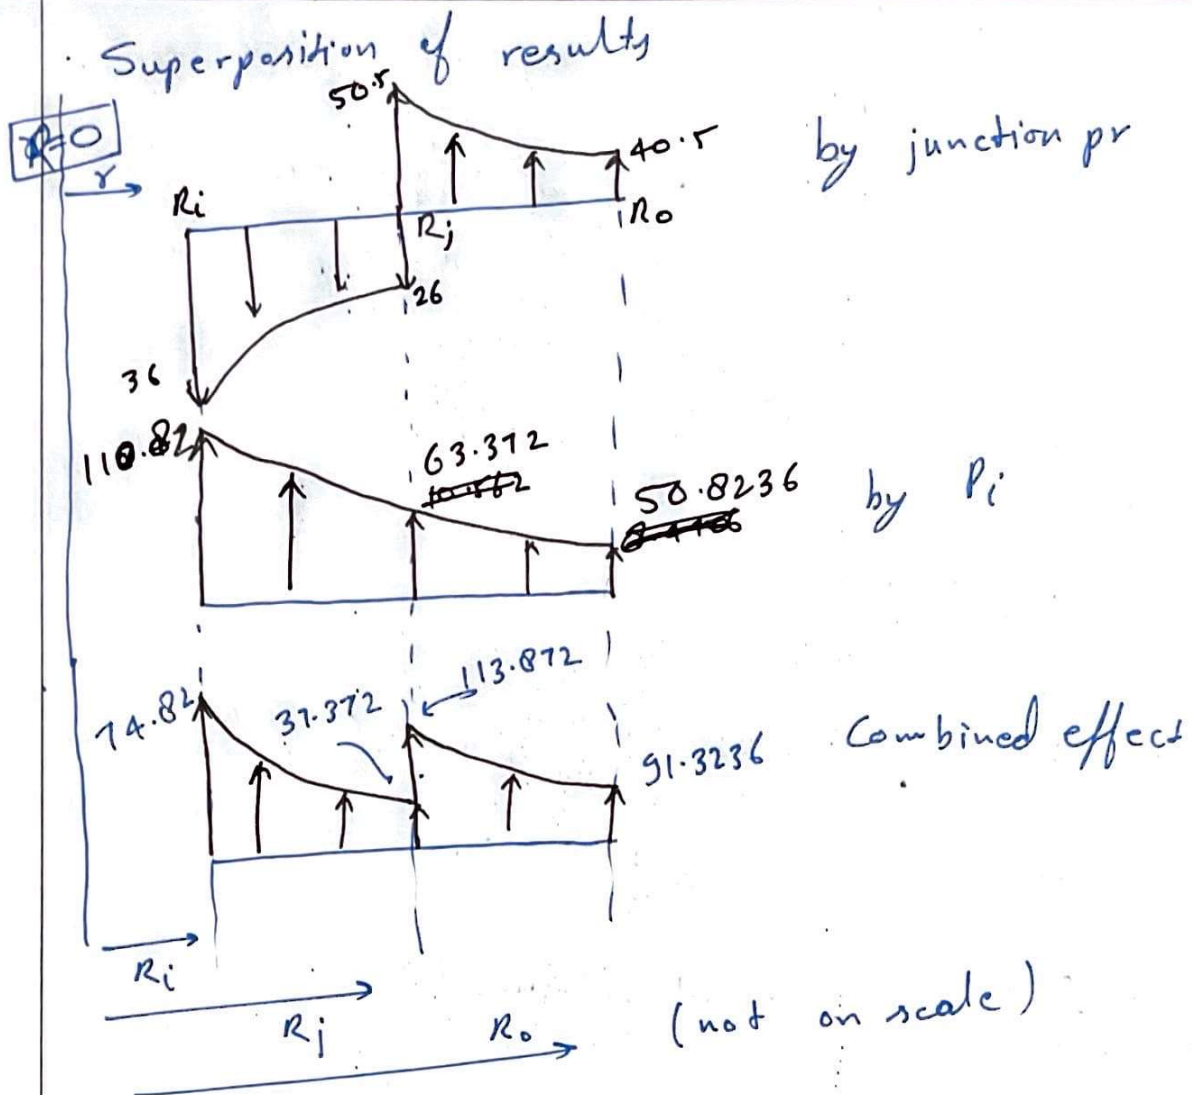 Superposition of results
50.5
r=0
r
40.5
by junction pr
Ri
Rj
Ro
26
36
110.82
63.372
50.8236
by Pi
113.872
74.82
37.372
91.3236
Combined effect
Ri
Rj
Ro
(not on scale)